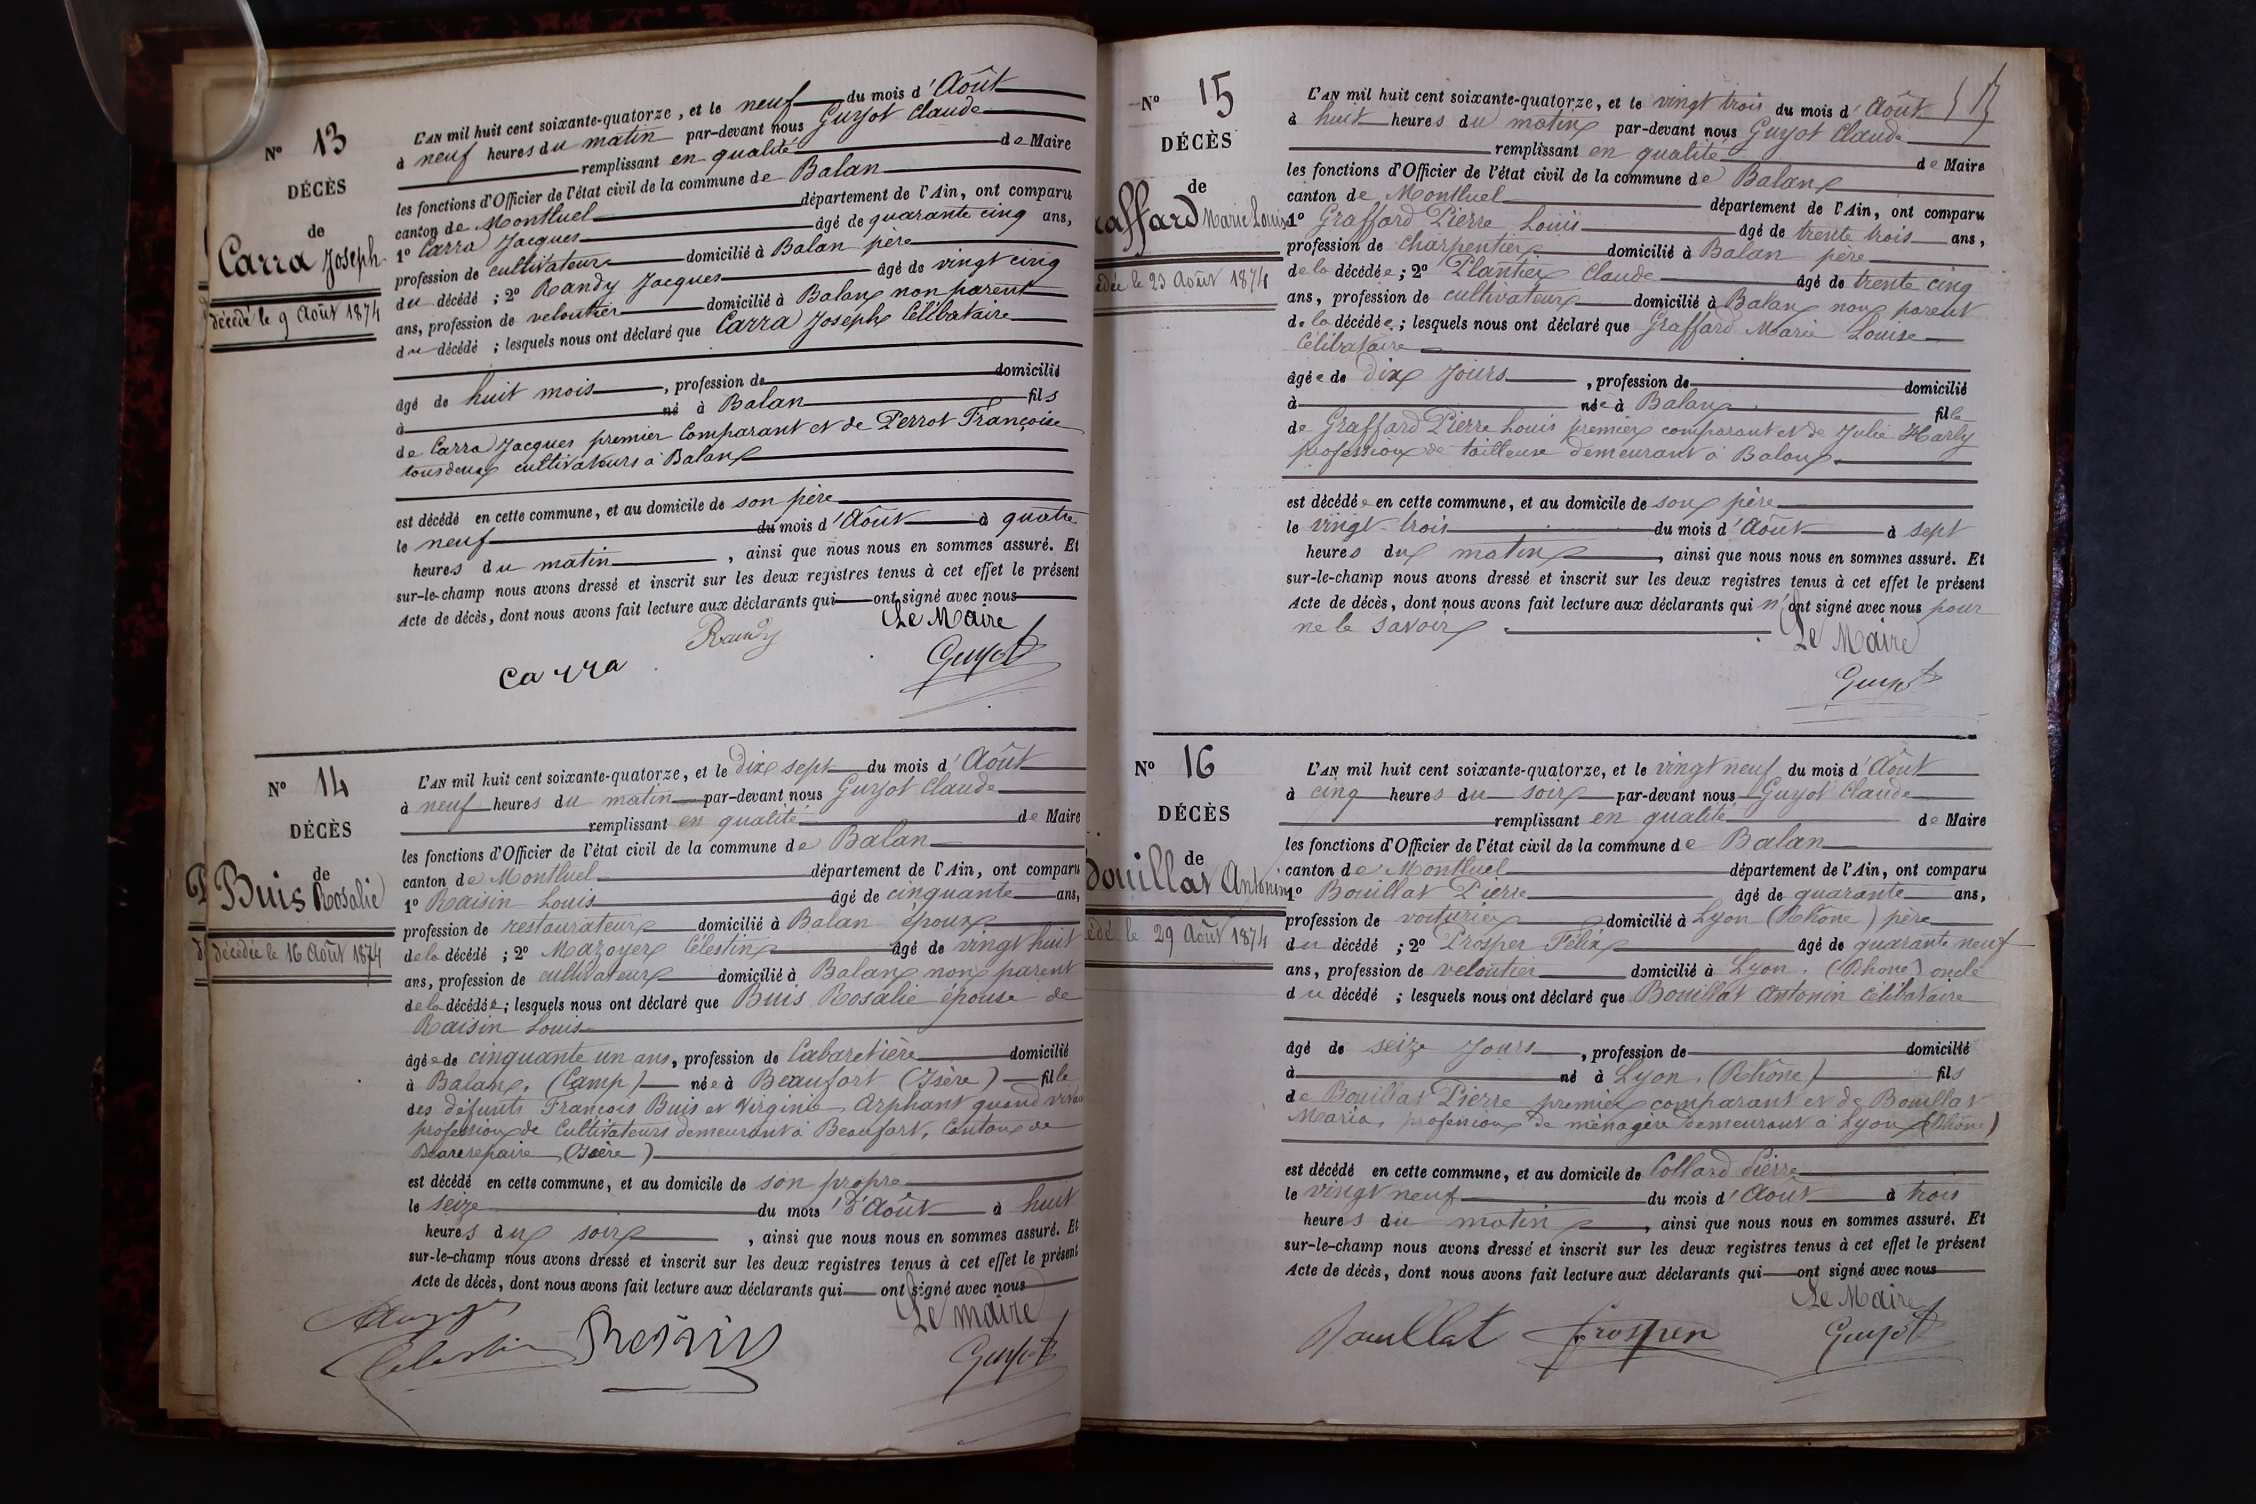 N° 13
DÉCÈS
de
Carra Joseph
décédé le 9 Août 1874
L'AN mil huit cent soixante-quatorze, et le neuf du mois d'Août
à neuf heures du matin par-devant nous Guyot Claude
remplissant en qualité de Maire
les fonctions d'Officier de l'état civil de la commune de Balan
canton de Montluel département de l'Ain, ont comparu
1° Carra Jacques âgé de quarante cinq ans,
profession de cultivateur domicilié à Balan père
du décédé ; 2° Randy Jacques âgé de vingt cinq
ans, profession de veloutier domicilié à Balan non parent
du décédé ; lesquels nous ont déclaré que Carra Joseph Célibataire
âgé de huit mois, profession de domicilié
à né à Balan fils
de Carra Jacques premier Comparant et de Perrot Françoise
tous deux cultivateurs à Balan
est décédé en cette commune, et au domicile de son père
le neuf du mois d'Août à quatre
heures du matin, ainsi que nous nous en sommes assuré. Et
sur-le-champ nous avons dressé et inscrit sur les deux registres tenus à cet effet le présent
Acte de décès, dont nous avons fait lecture aux déclarants qui ont signé avec nous
Le Maire
Randy
Carra Guyot
N° 14
DÉCÈS
de
Buis Rosalie
décédée le 16 Août 1874
L'AN mil huit cent soixante-quatorze, et le dix sept du mois d'Août
à neuf heures du matin par-devant nous Guyot Claude
remplissant en qualité de Maire
les fonctions d'Officier de l'état civil de la commune de Balan
canton de Montluel département de l'Ain, ont comparu
1° Raisin Louis âgé de cinquante ans,
profession de restaurateur domicilié à Balan époux
de la décédé ; 2° Mazoyer Célestin âgé de vingt huit
ans, profession de cultivateur domicilié à Balan non parent
de la décédée ; lesquels nous ont déclaré que Buis Rosalie épouse de
Raisin Louis
âgée de cinquante un ans, profession de Cabaretière domicilié
à Balan, (Camp) née à Beaufort (Isère) fille
des défunts François Buis et Virginie Orphant quand vivaient
profession de Cultivateurs demeurant à Beaufort, Canton de
Beaurepaire (Isère)
est décédé en cette commune, et au domicile de son propre
le seize du mois d'Août à huit
heures du soir, ainsi que nous nous en sommes assuré. Et
sur-le-champ nous avons dressé et inscrit sur les deux registres tenus à cet effet le présent
Acte de décès, dont nous avons fait lecture aux déclarants qui ont signé avec nous
Le maire
Celestin Resin Guyot
N° 15
DÉCÈS
de
raffard Marie Louise
édée le 23 Août 1874
L'AN mil huit cent soixante-quatorze, et le vingt trois du mois d'Août
à huit heures du matin par-devant nous Guyot Claude
remplissant en qualité de Maire
les fonctions d'Officier de l'état civil de la commune de Balan
canton de Montluel département de l'Ain, ont comparu
1° Graffard Pierre Louis âgé de trente trois ans,
profession de charpentier domicilié à Balan père
de la décédée ; 2° Plantier Claude âgé de trente cinq
ans, profession de cultivateur domicilié à Balan non parent
de la décédée ; lesquels nous ont déclaré que Graffard Marie Louise
Célibataire
âgée de dix jours, profession de domicilié
à née à Balan fille
de Graffard Pierre Louis premier comparant et de Julie Harly
profession de tailleuse demeurant à Balan
est décédée en cette commune, et au domicile de son père
le vingt trois du mois d'Août à sept
heures du matin, ainsi que nous nous en sommes assuré. Et
sur-le-champ nous avons dressé et inscrit sur les deux registres tenus à cet effet le présent
Acte de décès, dont nous avons fait lecture aux déclarants qui n'ont signé avec nous pour
ne le savoir.
Le Maire
Guyot
N° 16
DÉCÈS
de
Bouillat Antonin
édé le 29 Août 1874
L'AN mil huit cent soixante-quatorze, et le vingt neuf du mois d'Août
à cinq heures du soir par-devant nous Guyot Claude
remplissant en qualité de Maire
les fonctions d'Officier de l'état civil de la commune de Balan
canton de Montluel département de l'Ain, ont comparu
1° Bouillat Pierre âgé de quarante ans,
profession de voiturier domicilié à Lyon (Rhône) père
du décédé ; 2° Prosper Félix âgé de quarante neuf
ans, profession de veloutier domicilié à Lyon. (Rhone) oncle
du décédé ; lesquels nous ont déclaré que Bouillat Antonin Célibataire
âgé de seize jours, profession de domicilié
à né à Lyon. (Rhône) fils
de Bouillat Pierre premier comparant et de Bouillat
Maria, profession de ménagère demeurant à Lyon (Rhône)
est décédé en cette commune, et au domicile de Collard Pierre
le vingt neuf du mois d'Août à trois
heures du matin, ainsi que nous nous en sommes assuré. Et
sur-le-champ nous avons dressé et inscrit sur les deux registres tenus à cet effet le présent
Acte de décès, dont nous avons fait lecture aux déclarants qui ont signé avec nous
Le Maire
Bouillat Prosper Guyot